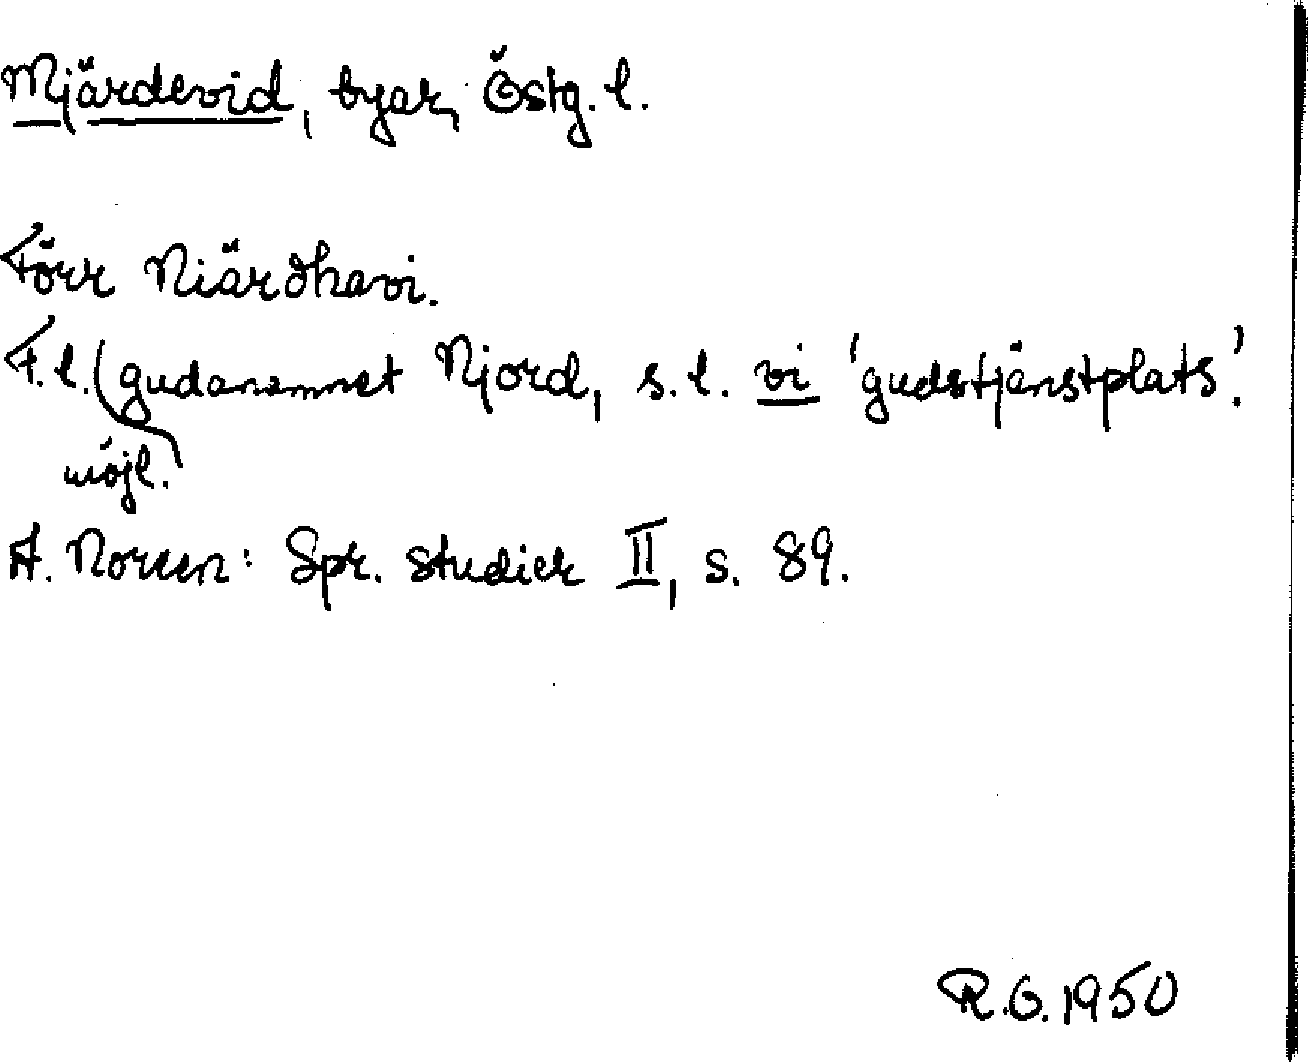 Mjärdevid, byar, Östg. l.
Förr Niärdhavi.
F.l. (gudanamnet Njord, s.l. vi 'gudstjänstplats'.
möjl.
A. Noreen: Spr. studier II, s. 89.
R.G. 1950